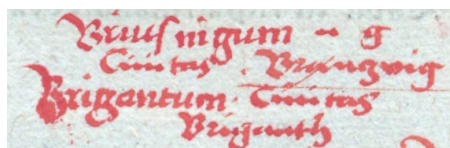 Brunsnigum – g
Ciuitas. Brunzvig
Brigantum. Ciuitas
Briganth